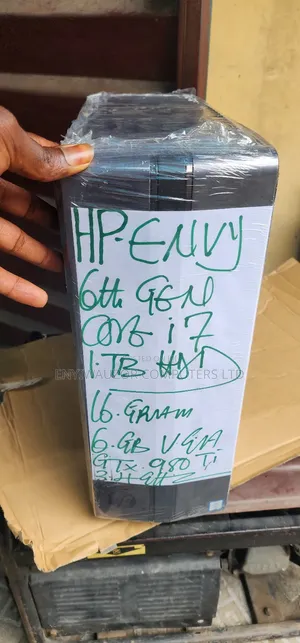 HP-ENVY
6th GEN
CORE i7
1.TB HDD
ENVIWAUGOH COMPUTERS LTD
16.GRAM
6.GB VGA
GTX.980 Ti
3.4 GHZ